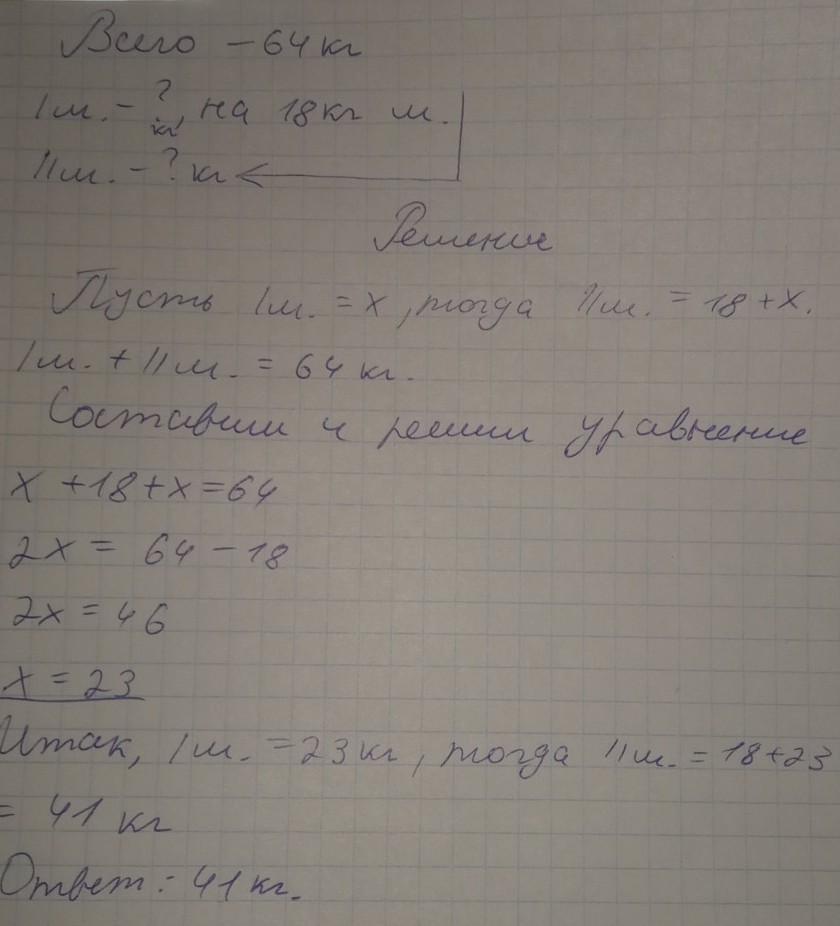 Всего – 64 кг
I м. – ? кг, на 18 кг м.
II м. – ? кг
Решение
Пусть I м. = x, тогда II м. = 18 + x.
I м. + II м. = 64 кг.
Составим и решим уравнение
x + 18 + x = 64
2x = 64 – 18
2x = 46
x = 23
Итак, I м. = 23 кг, тогда II м. = 18 + 23
= 41 кг
Ответ: 41 кг.